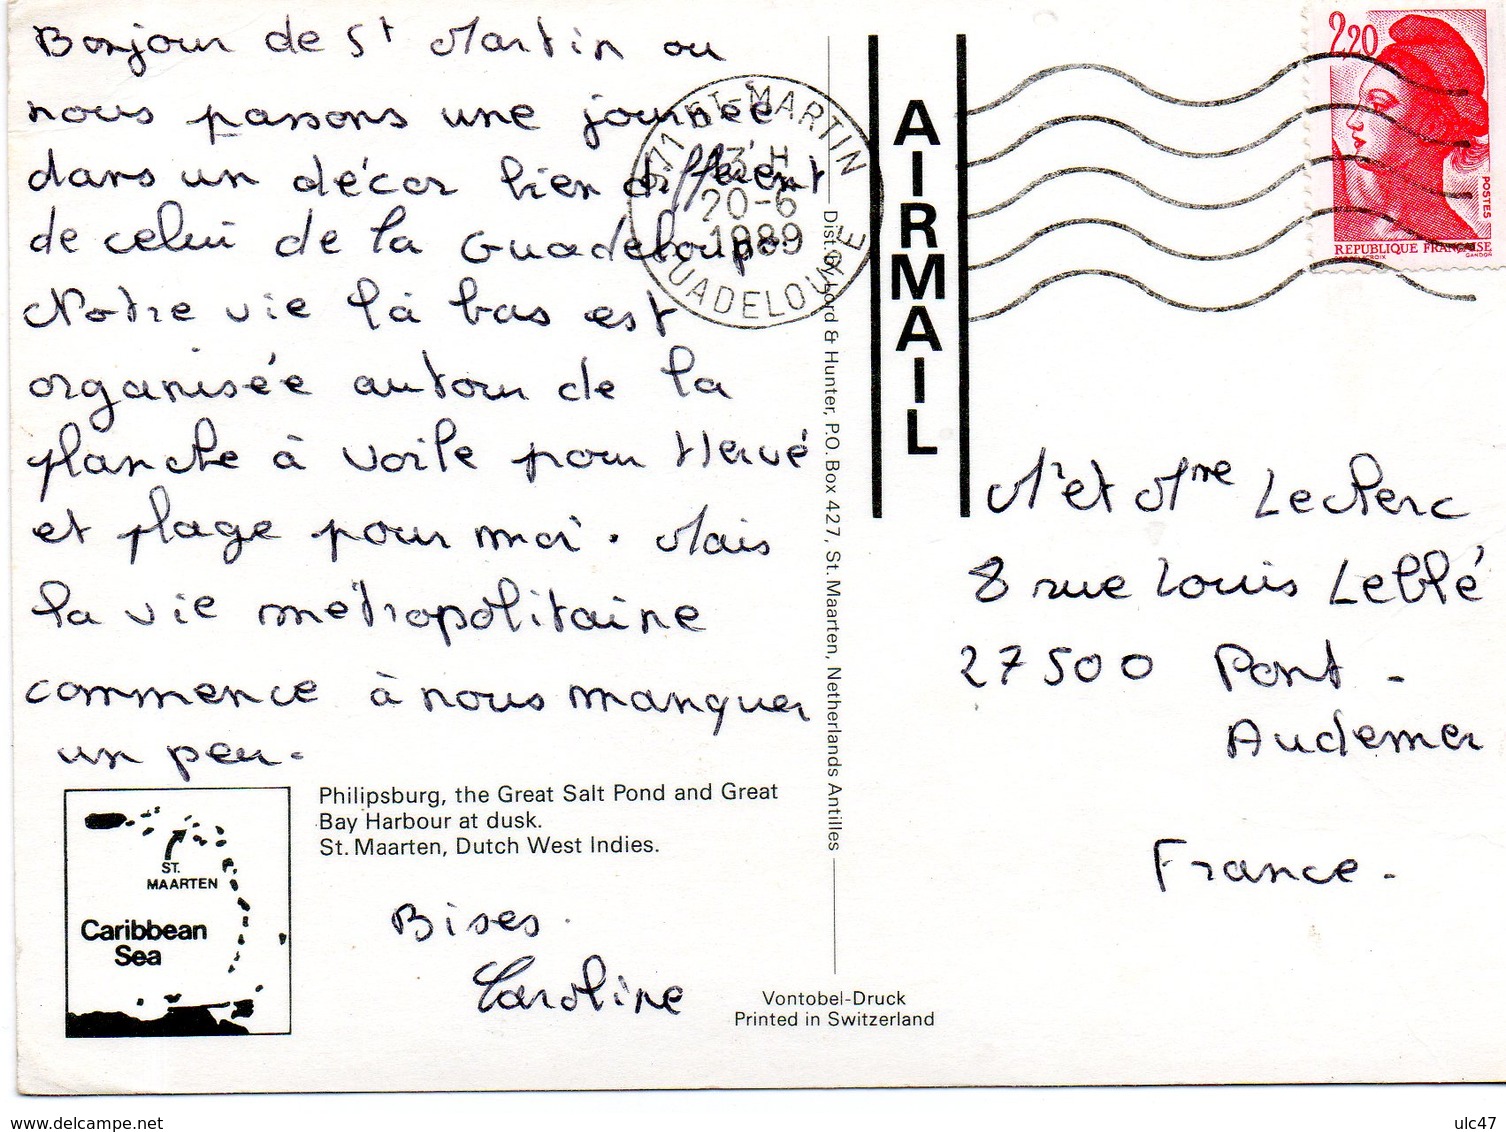 Bonjour de St Martin ou
nous passons une journée
dans un décor bien différent
de celui de la Guadeloupe.
Notre vie là bas est
organisée autour de la
planche à voile pour Hervé
et plage pour moi. Mais
la vie métropolitaine
commence à nous manquer
un peu.
Philipsburg, the Great Salt Pond and Great
Bay Harbour at dusk.
St. Maarten, Dutch West Indies.
ST.
MAARTEN
Caribbean
Sea
Bises.
Caroline
ST-MARTIN
13 H
20-6
1989
GUADELOUPE
Dist. by Lord & Hunter, P.O. Box 427, St. Maarten, Netherlands Antilles
Vontobel-Druck
Printed in Switzerland
AIRMAIL
2,20
POSTES
REPUBLIQUE FRANÇAISE
GANDON
Mr et Mme Leclerc
8 rue Louis Leblé
27500 Pont-
Audemer
France.
www.delcampe.net
ulc47